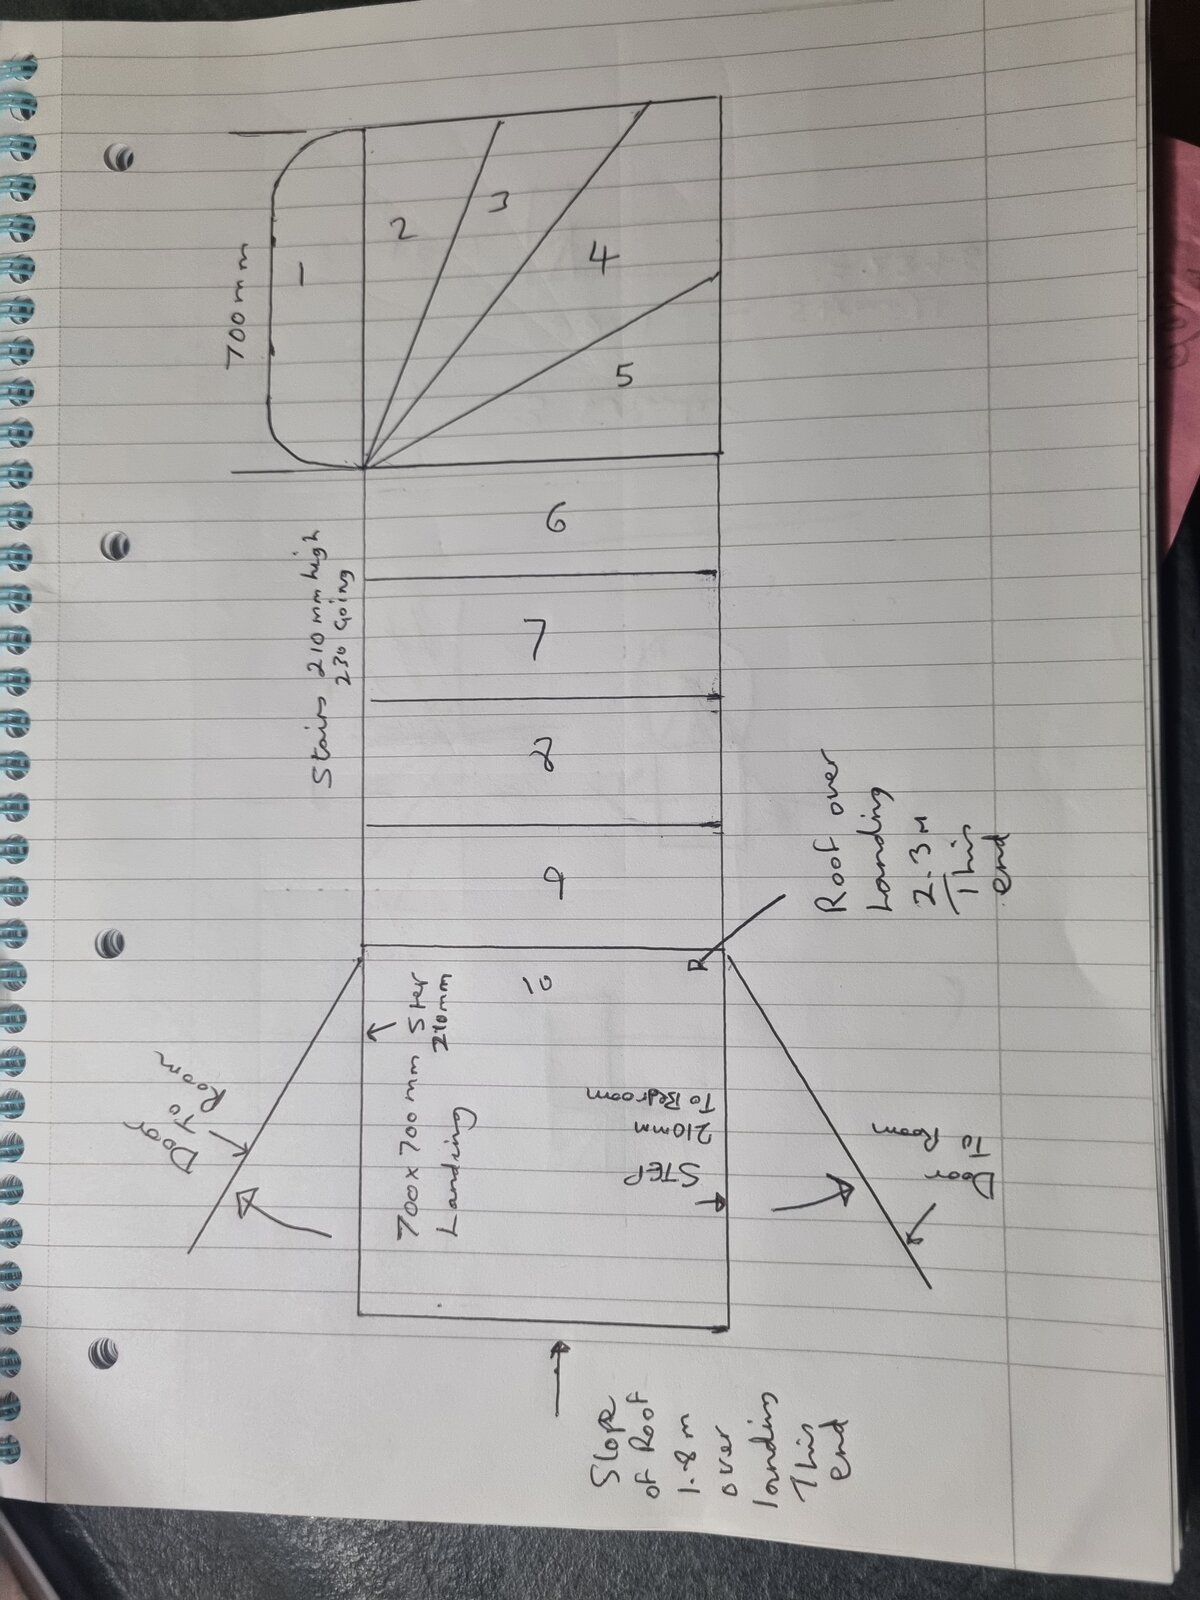 700mm
1
2
3
4
5
Stairs 210mm high
230 Going
6
7
8
9
10
Roof over
Landing
2.3M
This
end
700x700mm
Landing
Step
210mm
Door
to
Room
STEP
210mm
To Bedroom
Door
To Room
Slope
of Roof
1.8m
over
landing
This
end